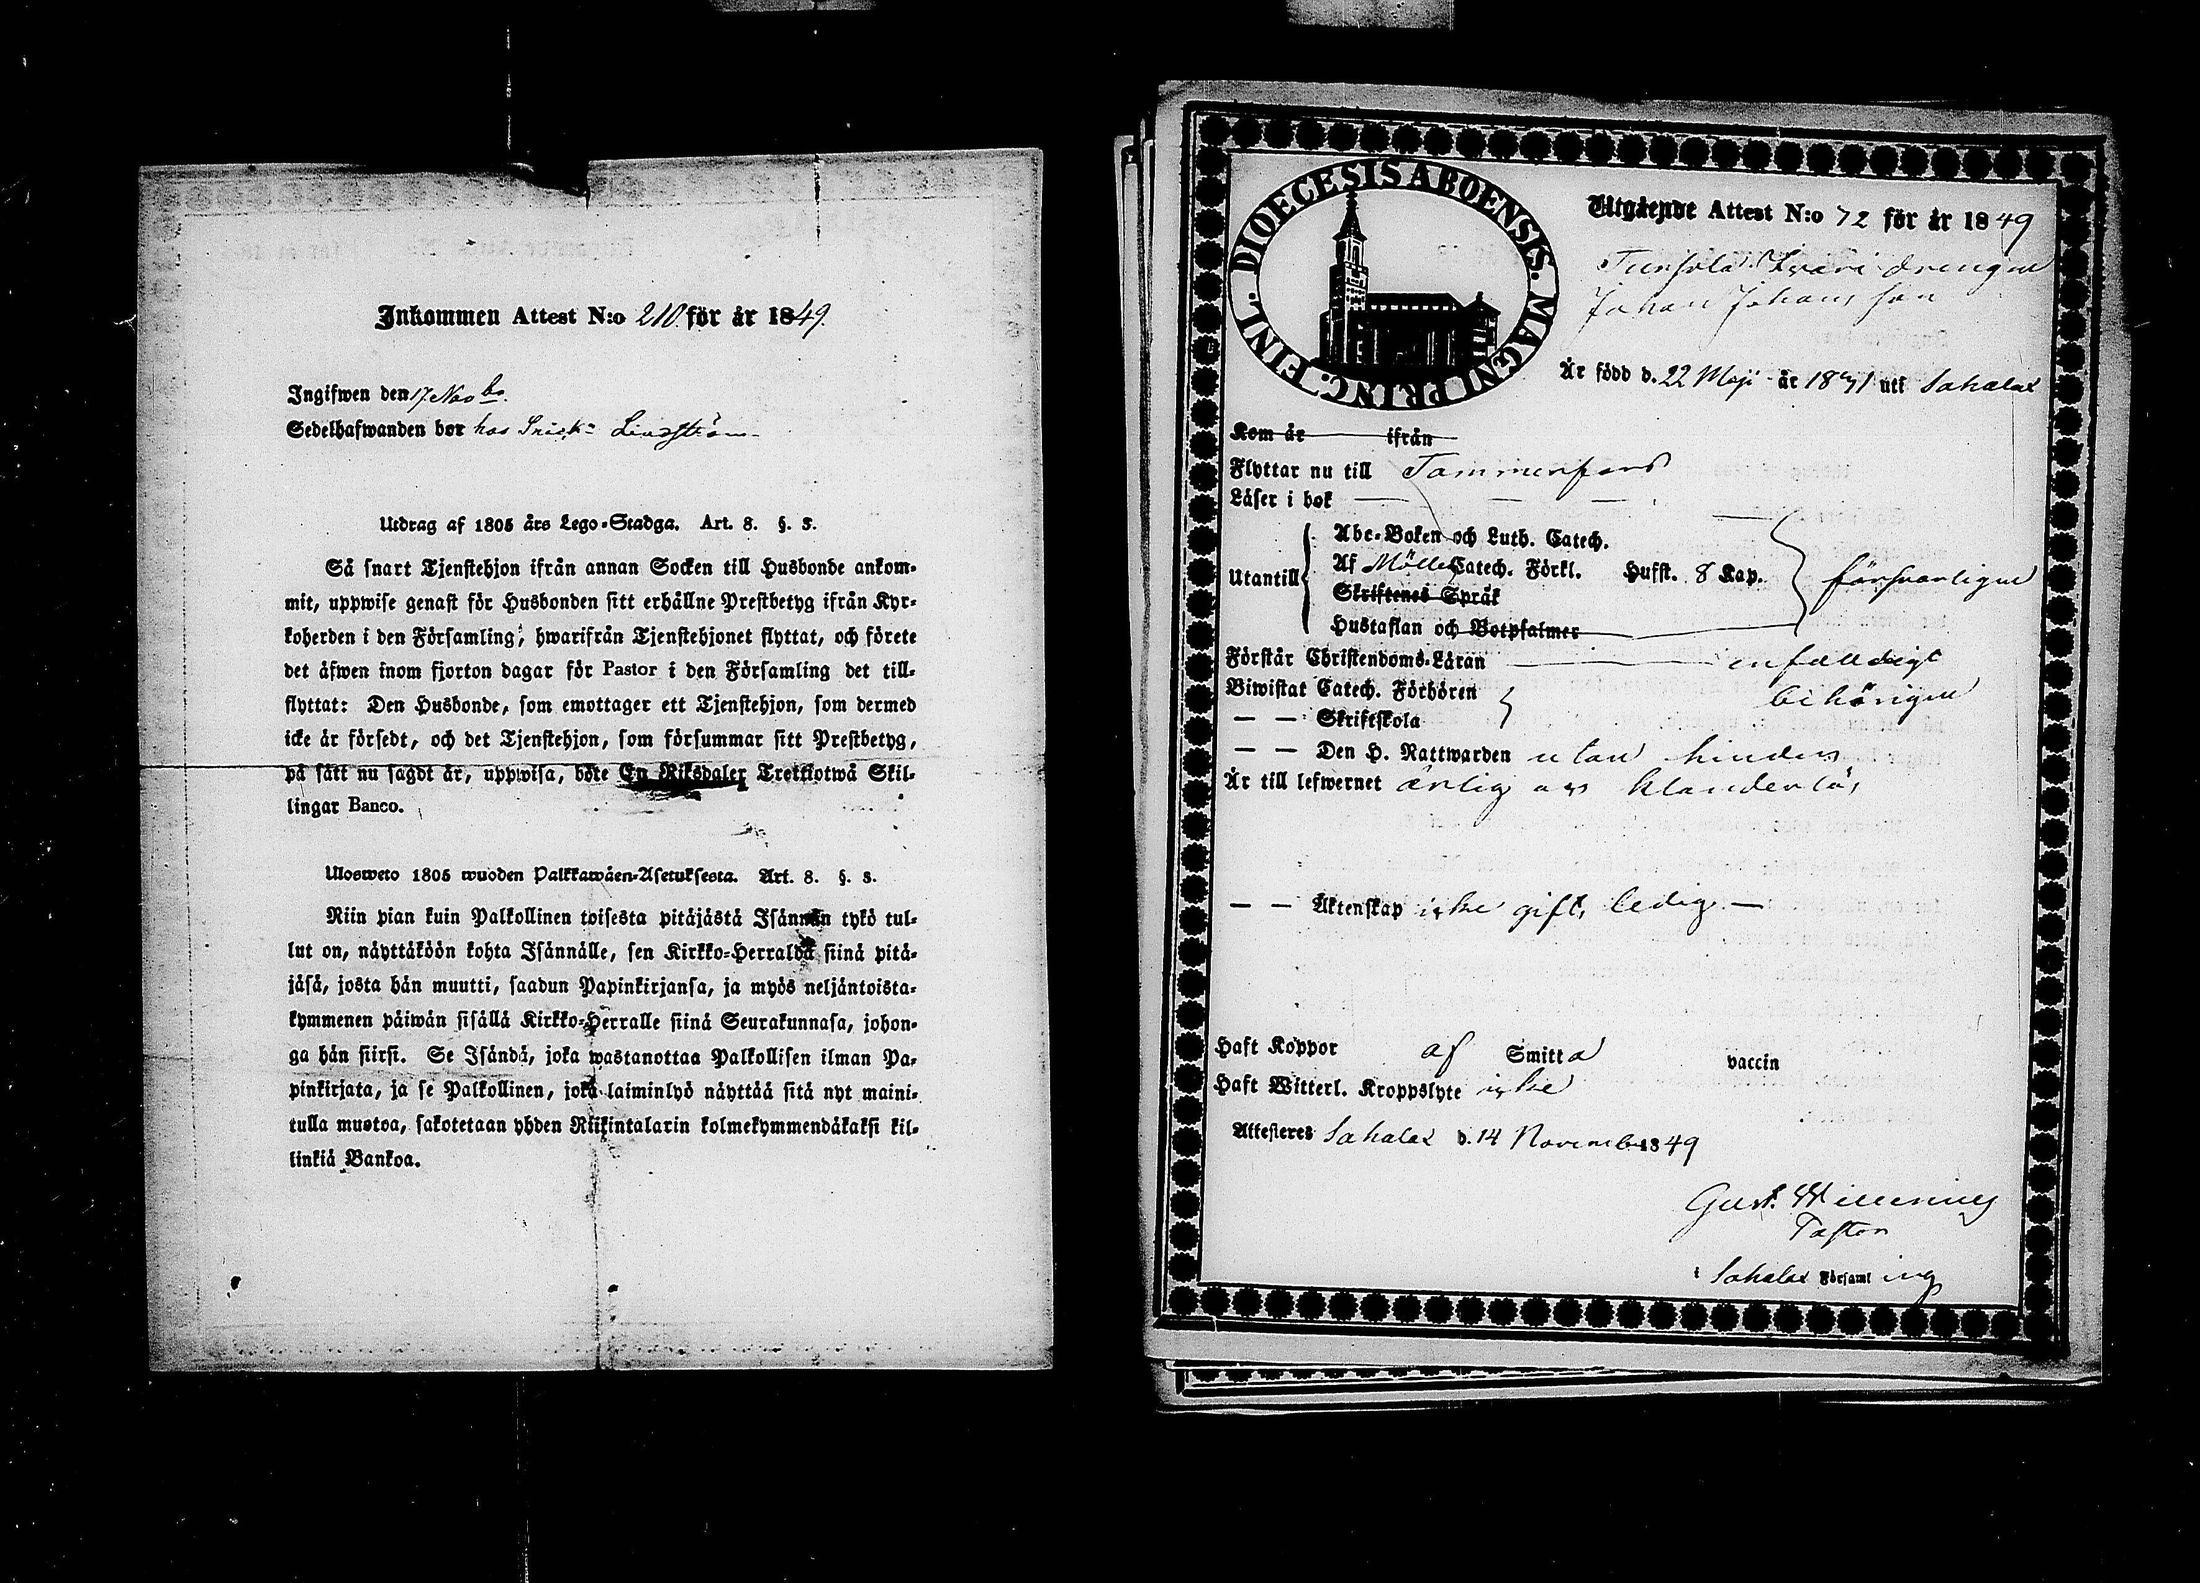 Inkommen Attest N:o 210. för år 1849.
Ingifwen den 17 Novbr.
Sedelhafwanden bor hos Snick: Lindström
Utdrag af 1805 års Lego-Stadga. Art. 8. §. 3.
Så snart Tjenstehjon ifrån annan Socken till Husbonde ankom-
mit, uppwise genast för Husbonden sitt erhållne Prestbetyg ifrån Kyr-
koherden i den Församling, hwarifrån Tjenstehjonet flyttat, och förete
det äfwen inom fjorton dagar för Pastor i den Församling det till-
flyttat: Den Husbonde, som emottager ett Tjenstehjon, som dermed
icke är försedt, och det Tjenstehjon, som försummar sitt Prestbetyg,
på sätt nu sagdt är, uppwisa, böte En Riksdaler Trettiotwå Skil-
lingar Banco.
Ulosweto 1805 wuoden Palkkawäen-Asetuksesta. Art. 8. §. 3.
Niin pian kuin Palkollinen toisesta pitäjästä Isännän tykö tul-
lut on, näyttäköön kohta Isännälle, sen Kirkko-Herralda siinä pitä-
jäsä, josta hän muutti, saadun Papinkirjansa, ja myös neljäntoista-
kymmenen päiwän sisällä Kirkko-Herralle siinä Seurakunnasa, johon-
ga hän siirsi. Se Isändä, joka wastanottaa Palkollisen ilman Pa-
pinkirjata, ja se Palkollinen, joka laiminlyö näyttää sitä nyt maini-
tulla muotoa, sakotetaan yhden Riikintalarin kolmekymmendäkaksi kil-
linkiä Bankoa.
DIOECESIS ABOENSIS. MAGNI PRINC. FINL.
Utgående Attest N:o 72 för år 1849
drengen
Johan Johansson
Är född d. 22 Maji år 1831 uti Sahalax
Kom år ifrån
Flyttar nu till Tammerfors
Läser i bok
Utantill
Abc-Boken och Luth. Catech.
Af Möllers Catech. Förkl. Husst. 8 Kap. försvarligen
Skriftenes Språk
Hustaflan och Botpsalmer
Förstår Christendoms-Läran enfaldigt
Biwistat Catech. Förhören behörigen
— — Skriftskola
— — Den H. Nattwarden utan hinder
Är till lefwernet ärlig och klanderlös
— — Äktenskap icke gift, ledig —
Haft Koppor af Smitta vaccin
Haft Witterl. Kroppslyte icke
Attesteres Sahalax d. 14 November 1849
Gust.
Pastor
i Sahalax Församling